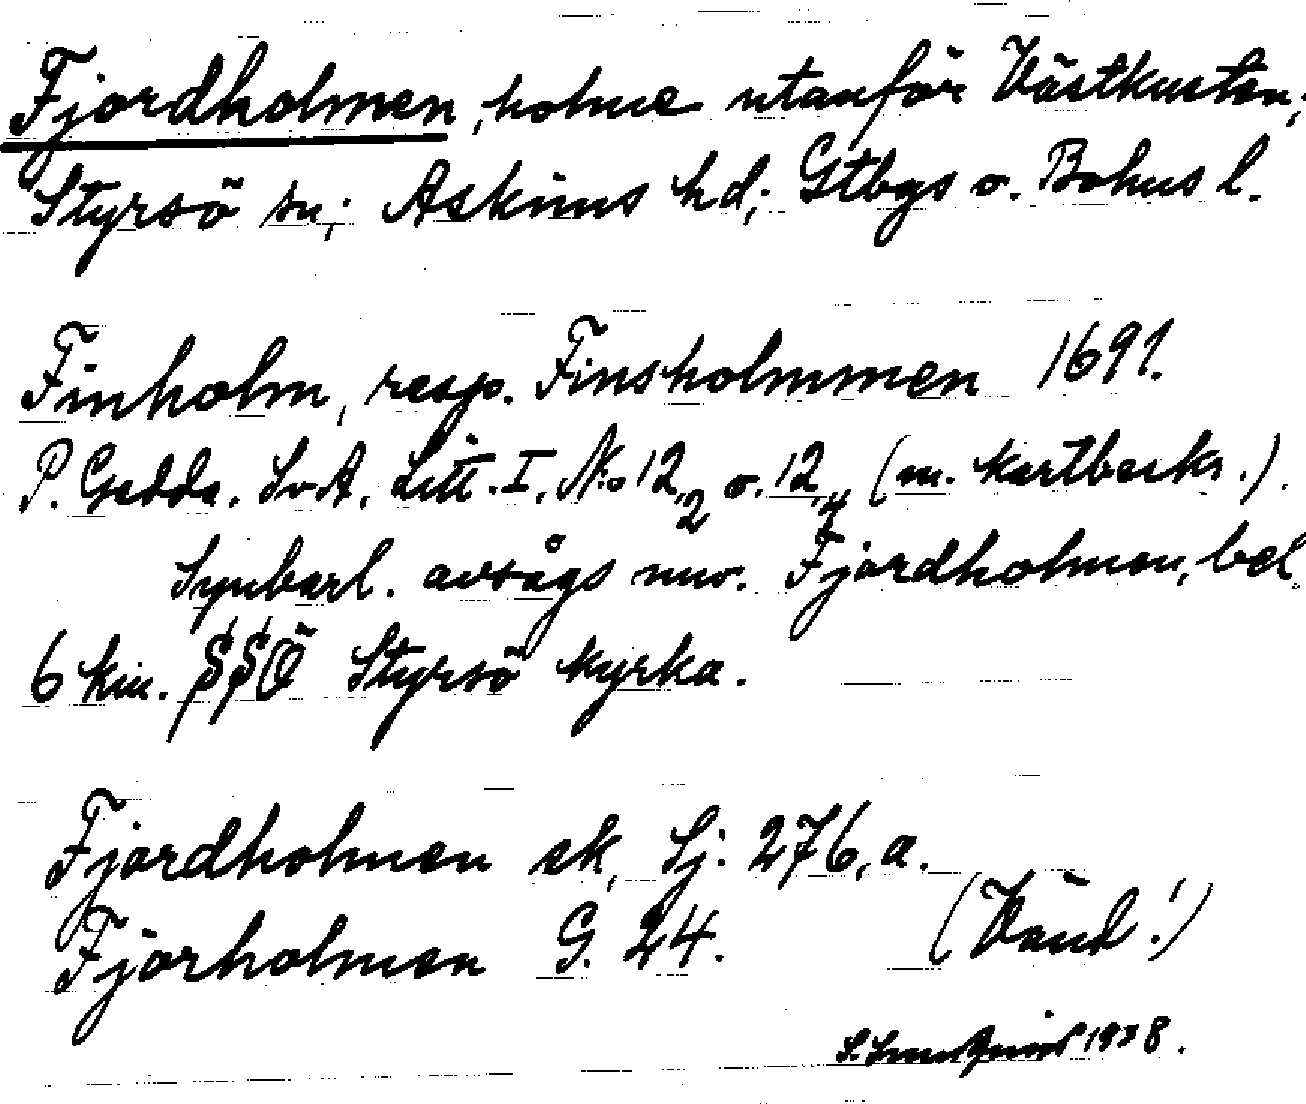 Fjordholmen, holme utanför Västkusten;
Styrsö sn; Askims hd; Gtbgs o. Bohus l.
Finholm, resp. Finsholmmen 1691.
P. Gedda. SvA. Litt. I. No 12,2 o. 12,4 (m. kartbeskr.).
Synbarl. avsågs nuv. Fjordholmen, bel.
6 km. SSÖ Styrsö kyrka.
Fjordholmen sk, Sj. 276,a.
Fjorholmen G. 24. (Vänd!)
1938.